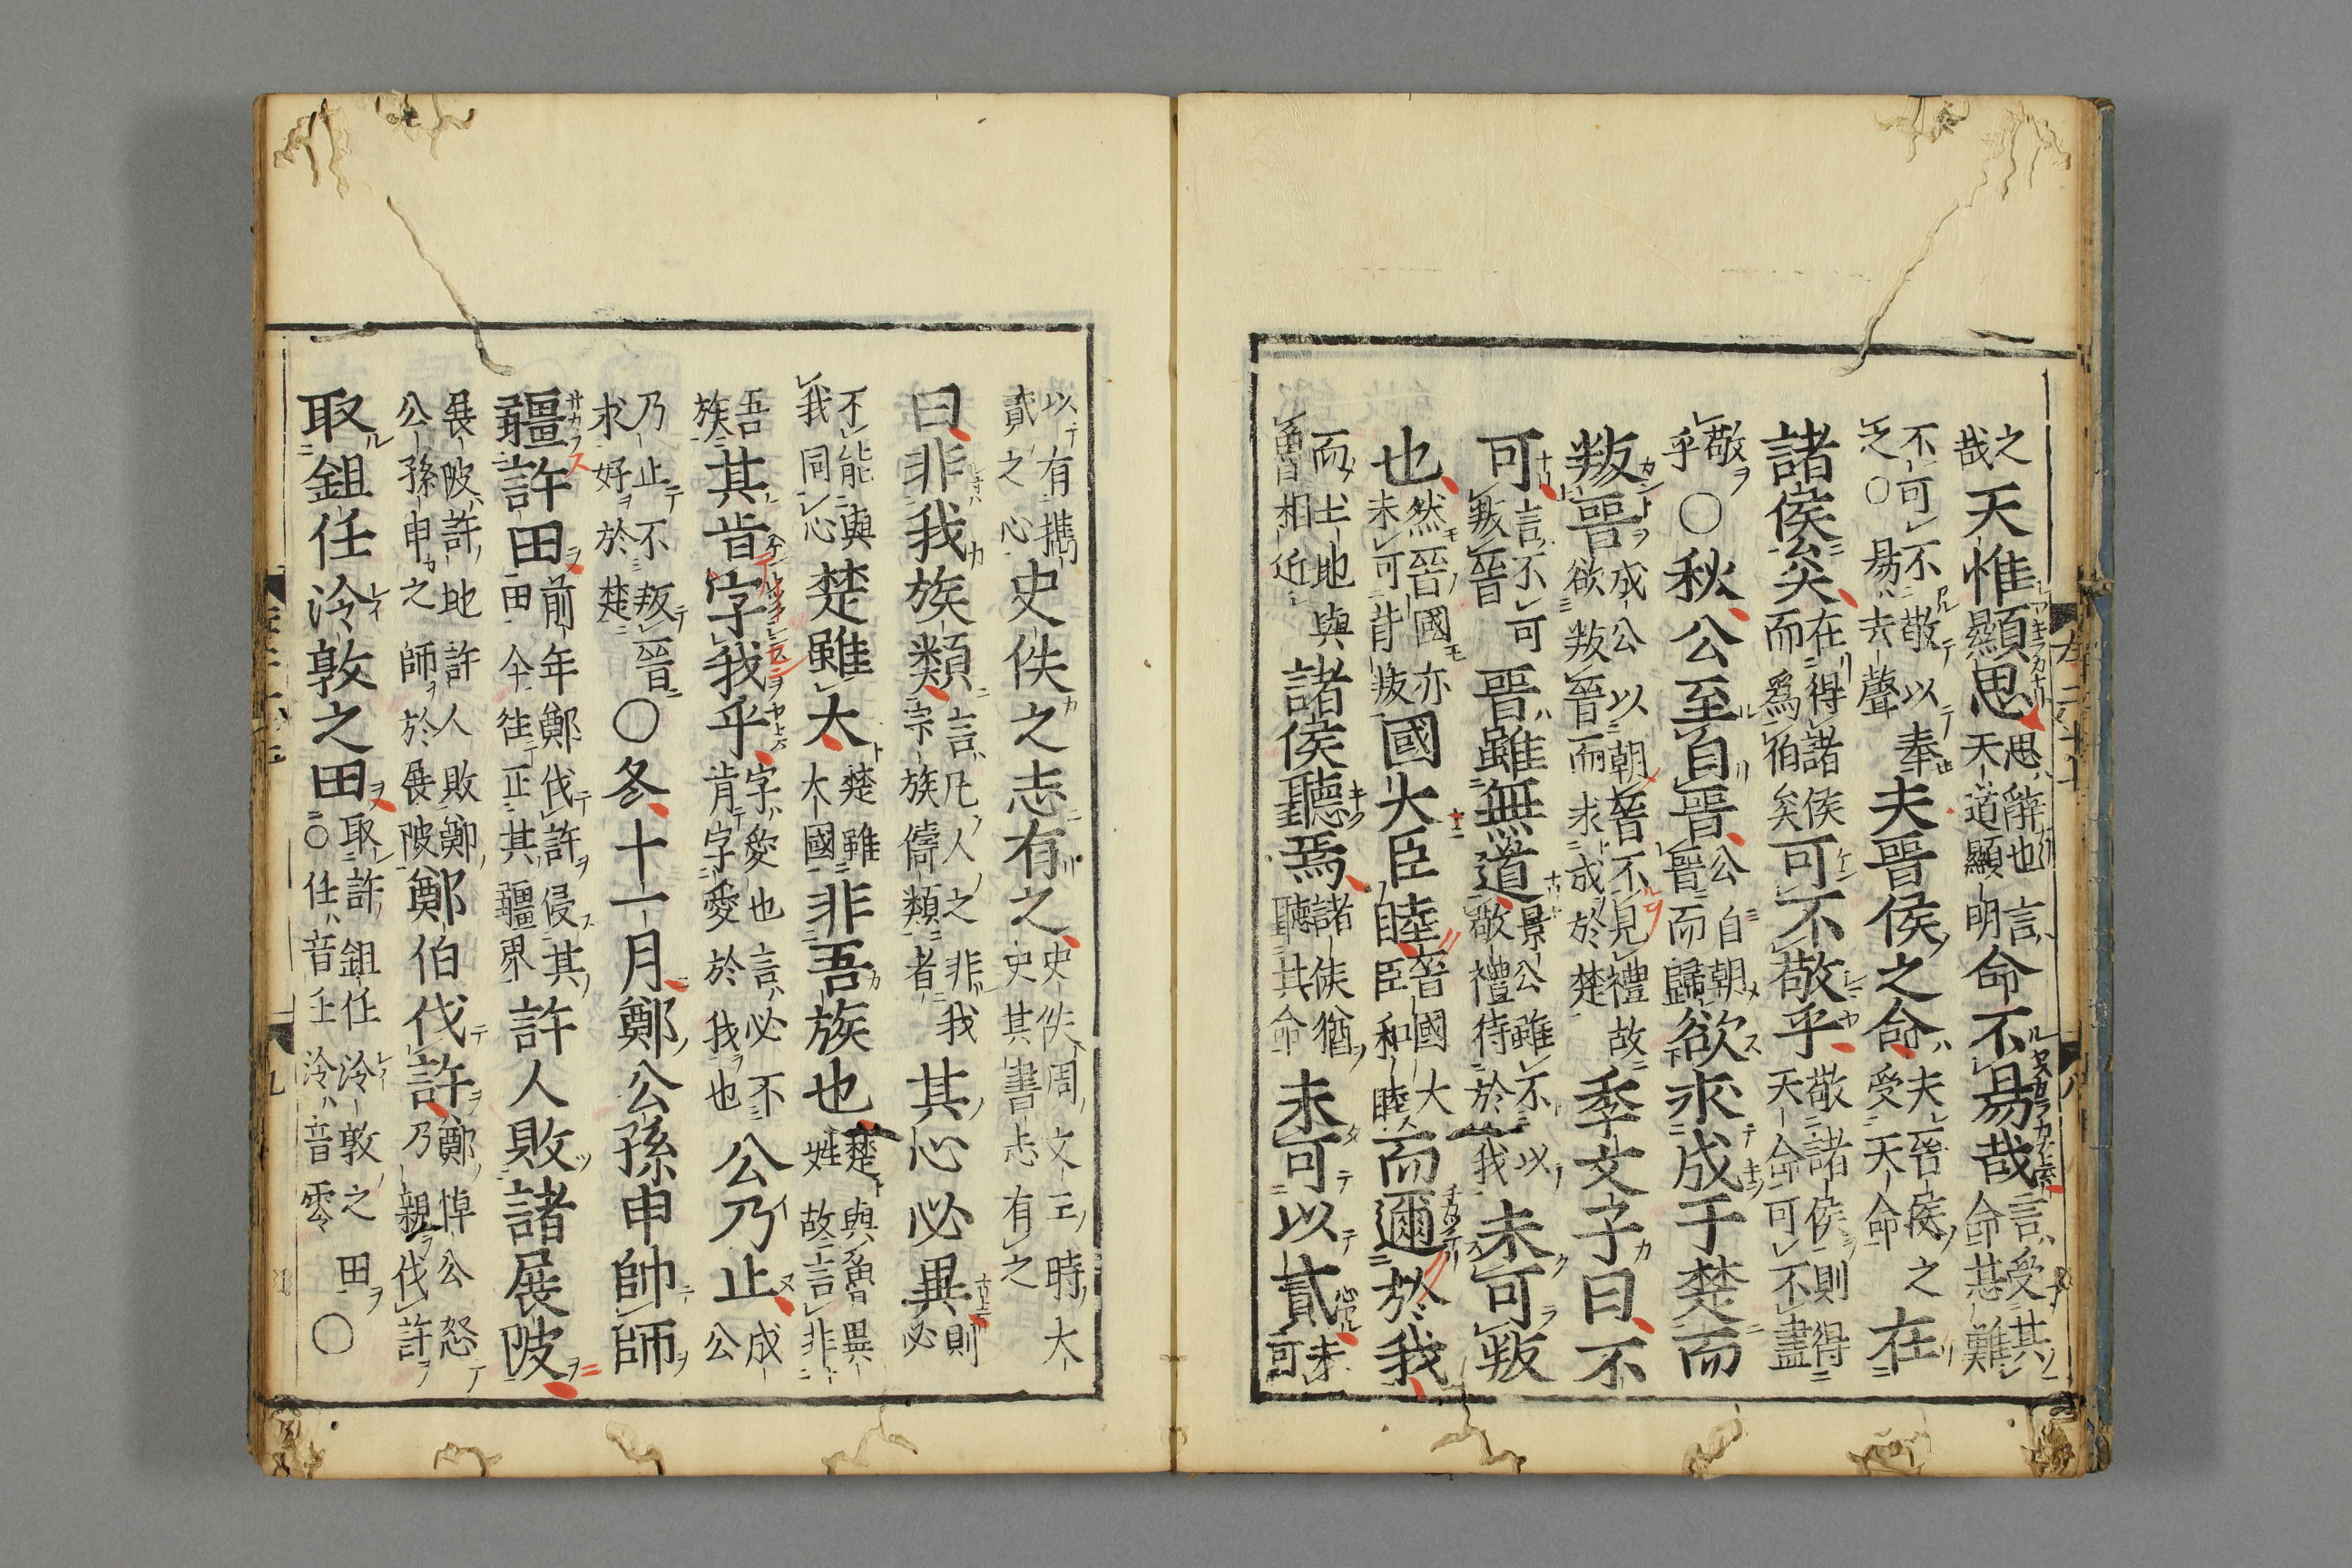 之哉天惟顯思思辭也言天道顯明命不易哉言受其命甚難
不可不敬以奉之○易去聲夫晉侯之命夫晉侯之受天命在
諸侯矣在得諸侯而爲伯矣可不敬乎敬諸侯則得天命可不盡
敬乎○秋公至自晉公自朝晉而歸欲求成于楚而
叛晉成公以朝晉不見禮故欲叛晉而求成於楚季文子曰不
可言不可叛晉晉雖無道景公雖不以敬禮待於我未可叛
也然晉國亦未可背叛國大臣睦晉國大臣和睦而邇於我
而土地與魯相近諸侯聽焉諸侯猶聽其命未可以貳未可
以有攜貳之心史佚之志有之史佚周文王時大史其書志有之
曰非我族類言凡人之非我宗族儔類者其心必異則必
不能與我同心楚雖大楚雖大國非吾族也楚與魯異姓故言非
吾族其肯字我乎字愛也言必不肯字愛於我也公乃止成公
乃止不叛晉求好於楚○冬十一月鄭公孫申帥師
疆許田前年鄭伐許侵其田今往正其疆界許人敗諸展陂
展陂許地許人敗鄭公孫申之師於展陂鄭伯伐許鄭悼公怒乃親伐許
取鉏任泠敦之田取許鉏任泠敦之田○任音壬泠音零○